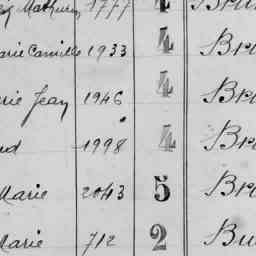 Mathurin 1777 4
Marie Camille 1933 4 Bro
Marie Jean 1946 4 Bro
1998 4 Bro
Marie 2043 5 Bro
Marie 712 2 Bu